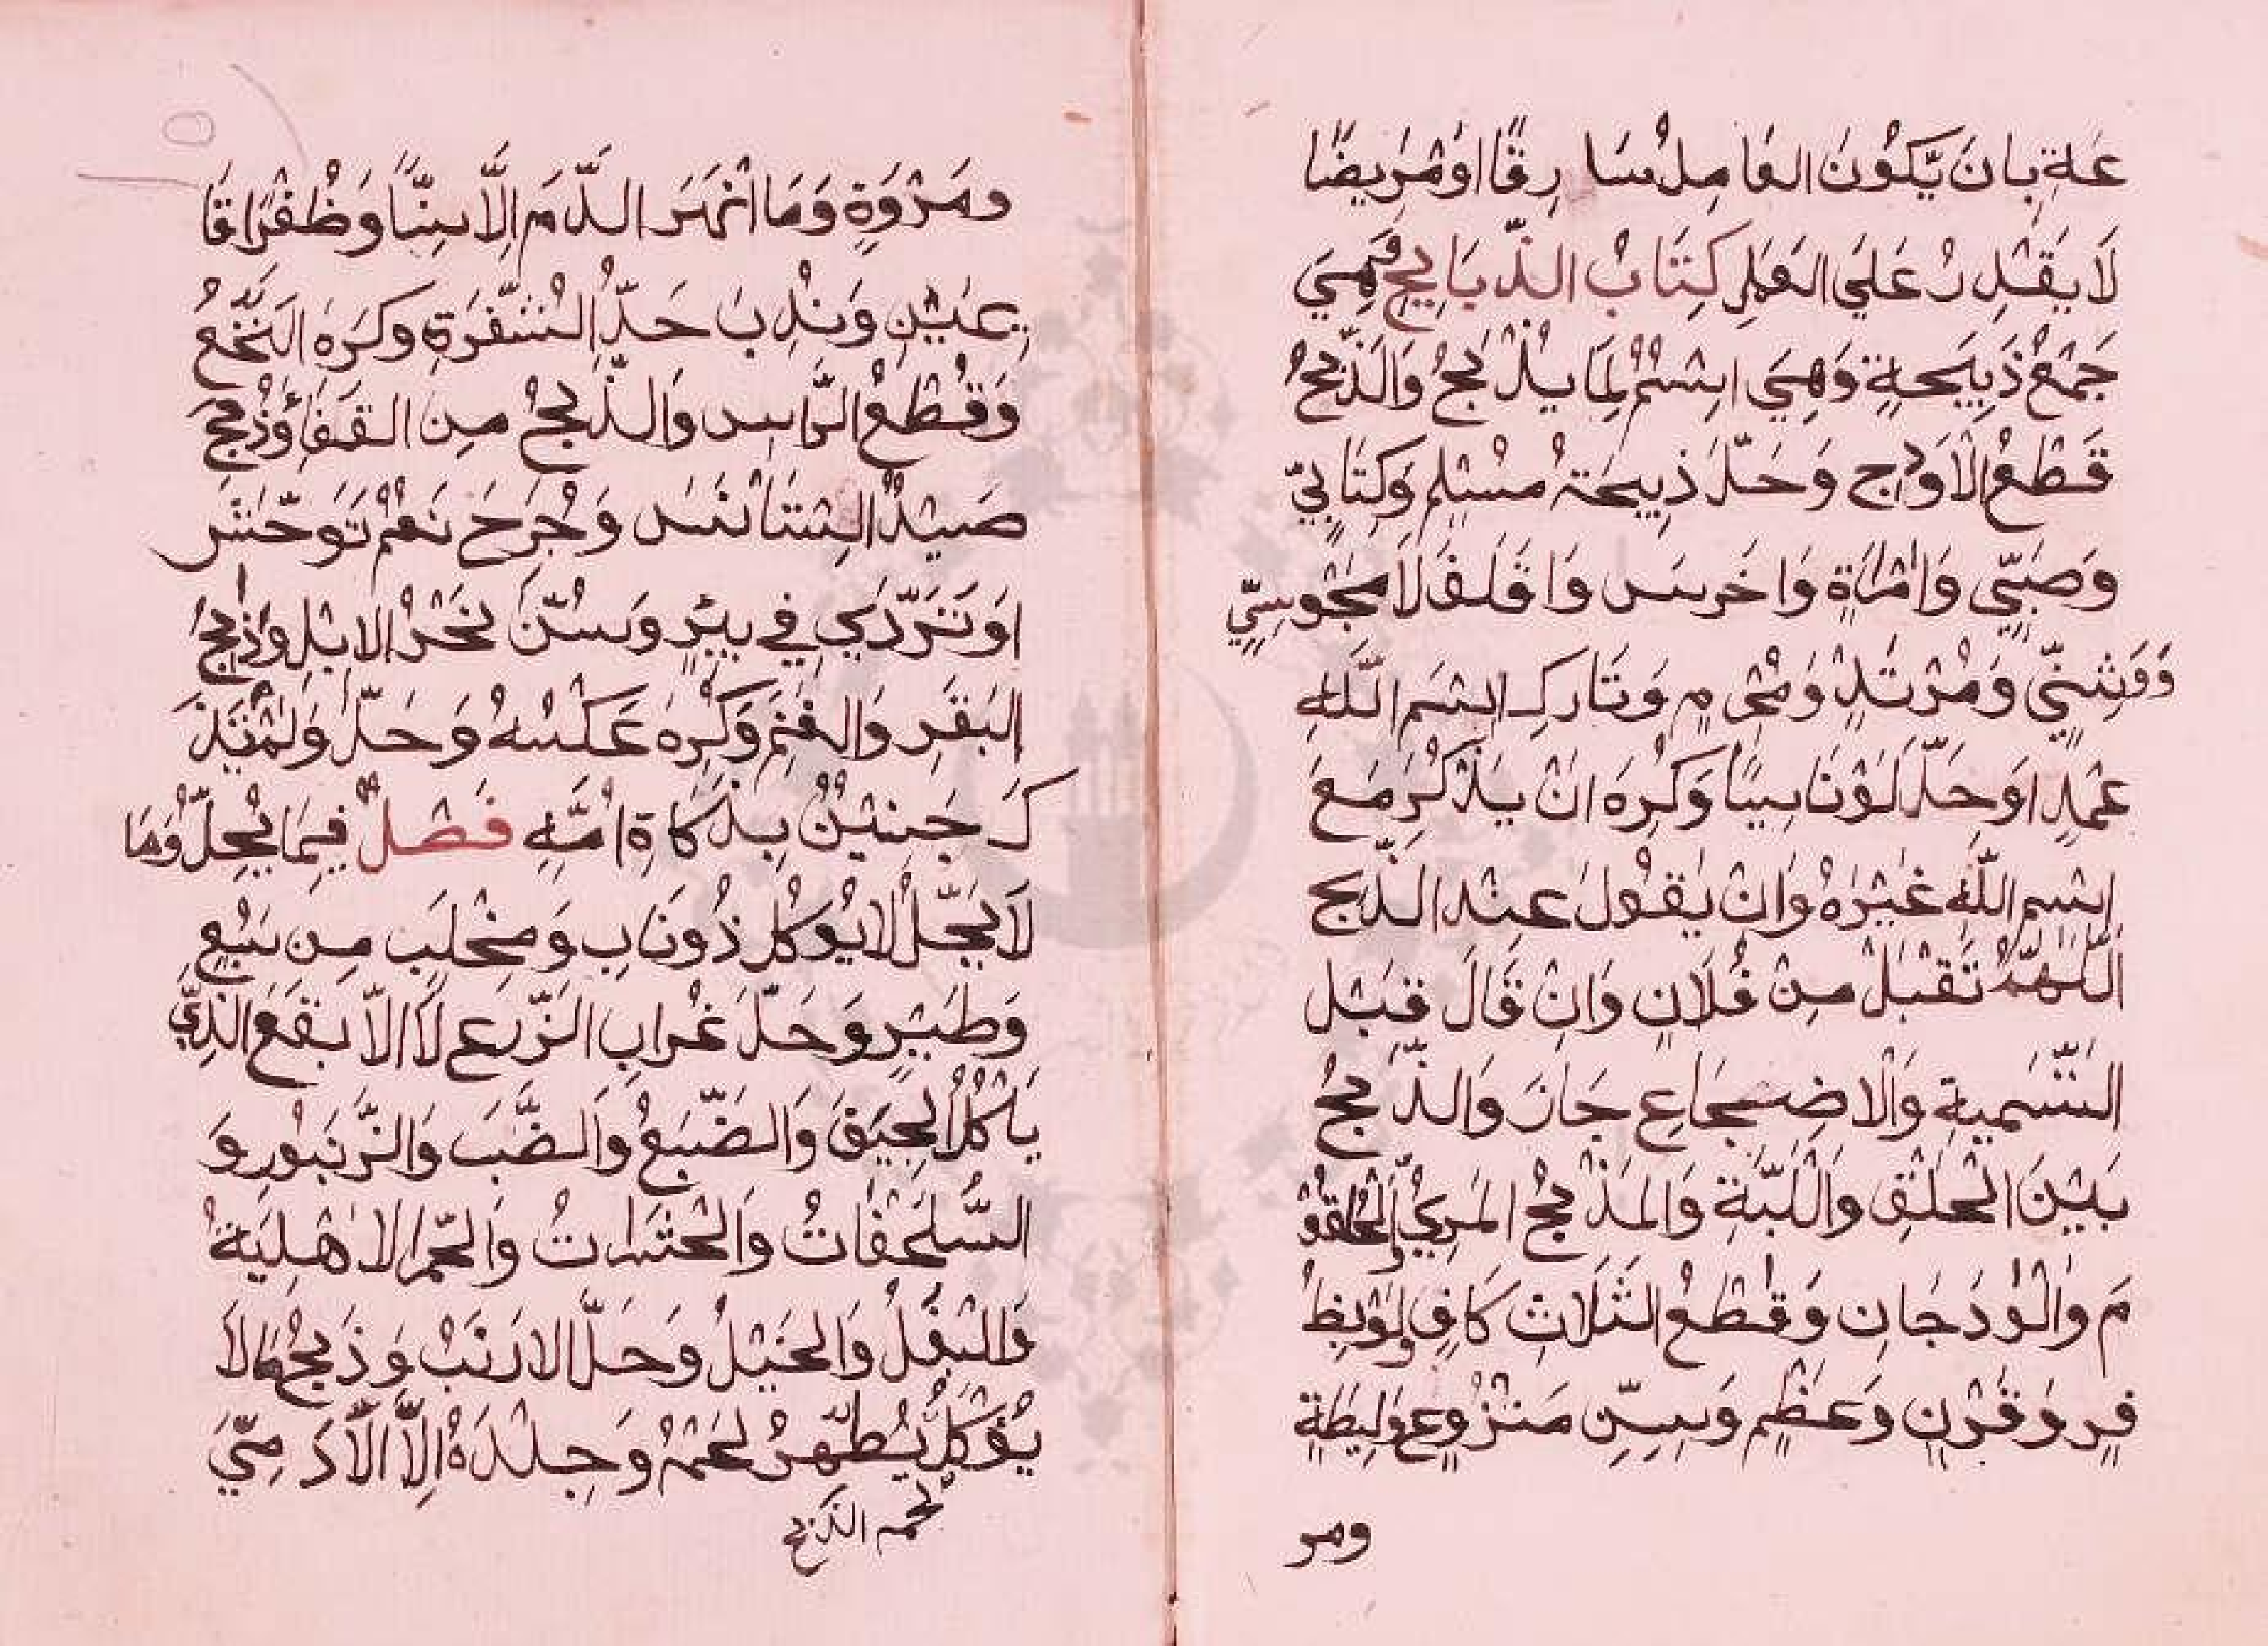 عَة بِاَن يَّكُونَ العَامِلُ سَا رِقًا اَوْ مَرِيضًا
لَا يَقْدِرُ عَلَي العَمَلِ كِتَابُ الذَّبَايِحِ فَهِيَ
جَمْعُ ذَبِيحَةٍ وَهِيَ اِسْمٌ لِمَا يُذْبَحُ وَالذَّبْحُ
قَطْعُ الْاَوْدَاج وَحَلَّ ذَبِيحَةُ مُسْلِمٍ وَكِتَابِيٍّ
وَصَبِيٍّ وَامْرَاَةٍ وَاَخْرَسَ وَاَقْلَفَ لَا مَجُوسِيٍّ
وَوَثَنِيٍّ وَمُرْتَدٍّ وَمُحْرِمٍ وَتَارِكِ اِسْمِ اللَّهِ
عَمْدًا وَحَلَّ لَوْ نَاسِيًا وَكُرِهَ اَنْ يَذْكُرَ مَعَ
اِسْمِ اللَّهِ غَيْرَهُ وَاَنْ يَقُولَ عِنْدَ الذَّبْحِ
اللَّهُمَّ تَقَبَّلْ مِنْ فُلَانٍ وَاِنْ قَالَ قَبْل
التَّسْمِيَةِ وَالْاضْجَاعِ جَازَ وَالذَّبْحُ
بَيْنَ الْحَلْقِ وَاللَّبَّةِ وَالمَذْبَحُ المَرِيُ وَالْحُلْقُوْ
مَ وَالْوَدَجَانِ وَقَطْعُ الثَّلَاثِ كَافٍ وَلَوْ بِظُ
فُرٍ وَقَرْنٍ وَعَظْمٍ وَسِنٍّ مَنْزُوعٍ وَلِيطَةٍ
ومر
وَمَرْوَةٍ وَمَا اَنْهَرَ الدَّمَ اِلَّا سِنًّا وَظُفْرًا قَا
يِمَيْنِ وَنُدِبَ حَدُّ الشَّفْرَةِ وَكَرِهَ النَّخْعُ
وَقَطْعُ الرَّاسِ وَالذَّبْحُ مِنَ القَفَا وَذُبِحَ
صَيْدٌ اِسْتَانَسَ وَجُرِحَ نَعَمٌ تَوَحَّشَ
اَوْ تَرَدَّي فِي بِيْرٍ وَسُنَّ نَحْرُ الابِلِ وَذَبْحُ
البَقَرِ وَالغَنَمِ وَكُرِهَ عَكْسُهُ وَحَلَّ وَلَمْ يُتَذَ
كَّ جَنِينٌ بِذَكَاةِ اُمِّهِ فَصْلٌ فِيمَا يَحِلُّ وَمَا
لَا يَحِلُّ لَا يُوكَلُ ذُو نَابٍ وَمِخْلَبٍ مِن سَبُعٍ
وَطَيْرٍ وَحَلَّ غُرَابُ الزَّرْعِ لَا الْاَبْقَعَ الذِي
يَاكُلُ الجِيَفَ وَالضَّبُعُ وَالضَّبَ وَالزَّنبُورِ وَ
السُّلَحْفَاتُ وَالحَشَرَاتُ وَالحُمُرُ الاَهْلِيَةُ
وَالبَغْلُ وَالخَيْلُ وَحَلَّ الارْنَبُ وَذَبْحُ مَا لَا
يُؤكَلُ يُطَهِّرُ لَحْمَهُ وَجِلْدَهُ اِلَّا الْآدَمِيَّ